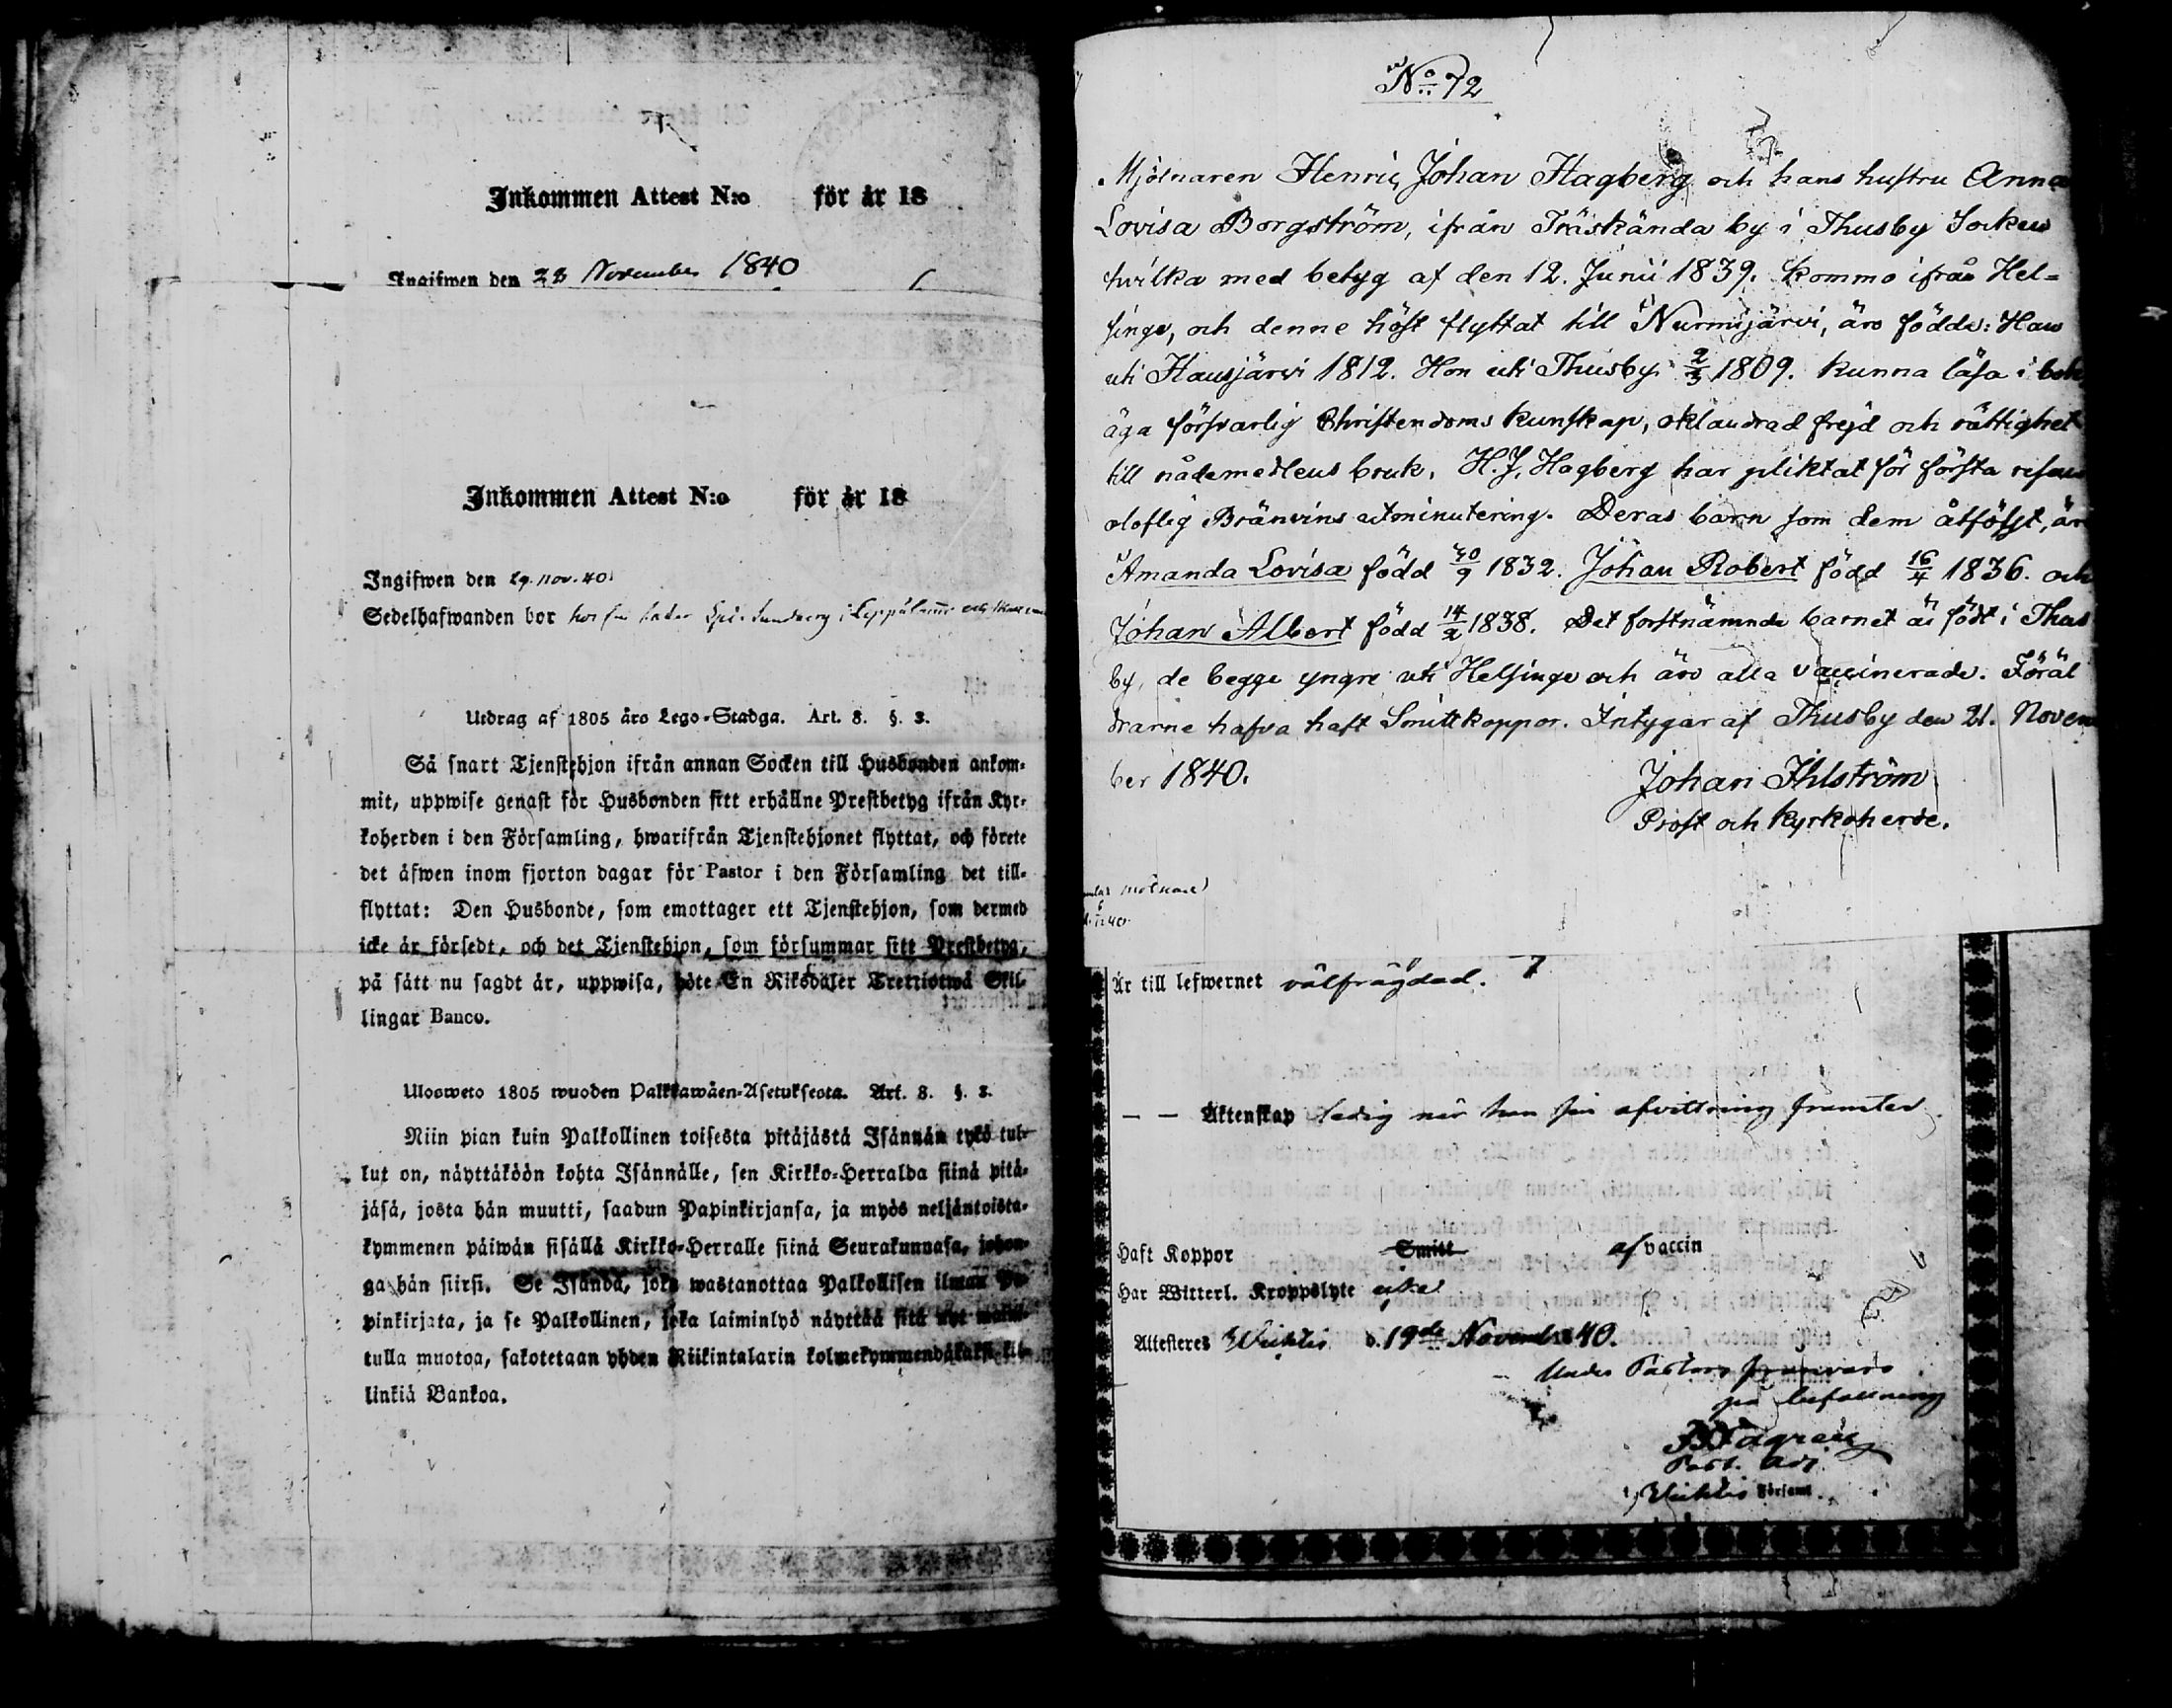 Inkommen Attest N:o för år 18
Ingifwen den 28 November 1840
Inkommen Attest N:o för år 18
Ingifwen den 29. nov. 40.
Sedelhafwanden bor hos
Utdrag af 1805 års Lego-Stadga. Art. 8. §. 3.
Så snart Tjenstehjon ifrån annan Socken till Husbonden ankom-
mit, uppwise genast för Husbonden sitt erhållne Prestbetyg ifrån Kyr-
koherden i den Församling, hwarifrån Tjenstehjonet flyttat, och förete
det äfwen inom fjorton dagar för Pastor i den Församling det till-
flyttat: Den Husbonde, som emottager ett Tjenstehjon, som dermed
icke är försedt, och det Tjenstehjon, som försummar sitt Prestbetyg,
på sätt nu sagdt är, uppwisa, böte En Riksdaler Trettiotwå Skil-
lingar Banco.
Ulosweto 1805 wuoden Palkkawäen-Asetuksesta. Art. 8. §. 3.
Niin pian kuin Palkollinen toisesta pitäjästä Isännän tykö tul-
lut on, näyttäköön kohta Isännälle, sen Kirkko-Herralda siinä pitä-
jäsä, josta hän muutti, saadun Papinkirjansa, ja myös neljäntoista-
kymmenen päiwän sisällä Kirkko-Herralle siinä Seurakunnasa, johon-
ga hän siirsi. Se Isändä, joka wastanottaa Palkollisen ilman Pa-
pinkirjata, ja se Palkollinen, joka laiminlyö näyttää sitä nyt mainit-
tulla muotoa, sakotetaan yhden Riikintalarin kolmekymmendäkaksi kil-
linkiä Bankoa.
No 72
Mjölnaren Henric Johan Hagberg och hans hustru Anna
Lovisa Borgström, ifrån Träskända by i Thusby Socken
hvilka med betyg af den 12. Junii 1839. kommo ifrån Hel-
singe, och denne höst flyttat till Nurmijärvi, äro födde: Han
uti Hausjärvi 1812. Hon uti Thusby 2/3 1809. kunna läsa i bok
äga försvarlig Christendoms kunskap, oklandrad frejd och rättighet
till nådemedlens bruk. H. J. Hagberg har pliktat för första resan
oloflig Bränvins utminutering. Deras barn som dem åtföljt, äro
Amanda Lovisa född 30/9 1832. Johan Robert född 16/4 1836. och
Johan Albert född 14/2 1838. Det förstnämnde barnet är födt i Thus
by, de begge yngre uti Helsinge och äro alla vaccinerade. Föräl
drarne hafva haft Smittkoppor. Intygar af Thusby den 21. Novem
ber 1840.
Johan Ihlström
Prost och Kyrkoherde.
Är till lefwernet välfrägdad.
— — Äktenskap ledig när hon sin afvittring framter
Haft Koppor Smitt af vaccin
Har Witterl. Kroppslyte
Attesteras Wichtis d. 19de Novemb. 1840.
Under Pastors frånvaro
på befallning
Past. Adj.
i Wichtis Församl.